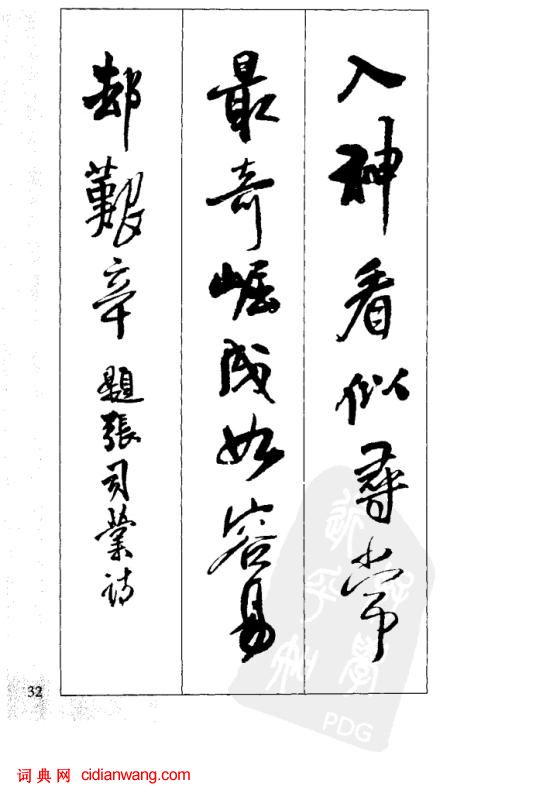 入神看似尋常
最奇崛成如容易
却艱辛 題張司業詩
32
PDG
词典网 cidianwang.com